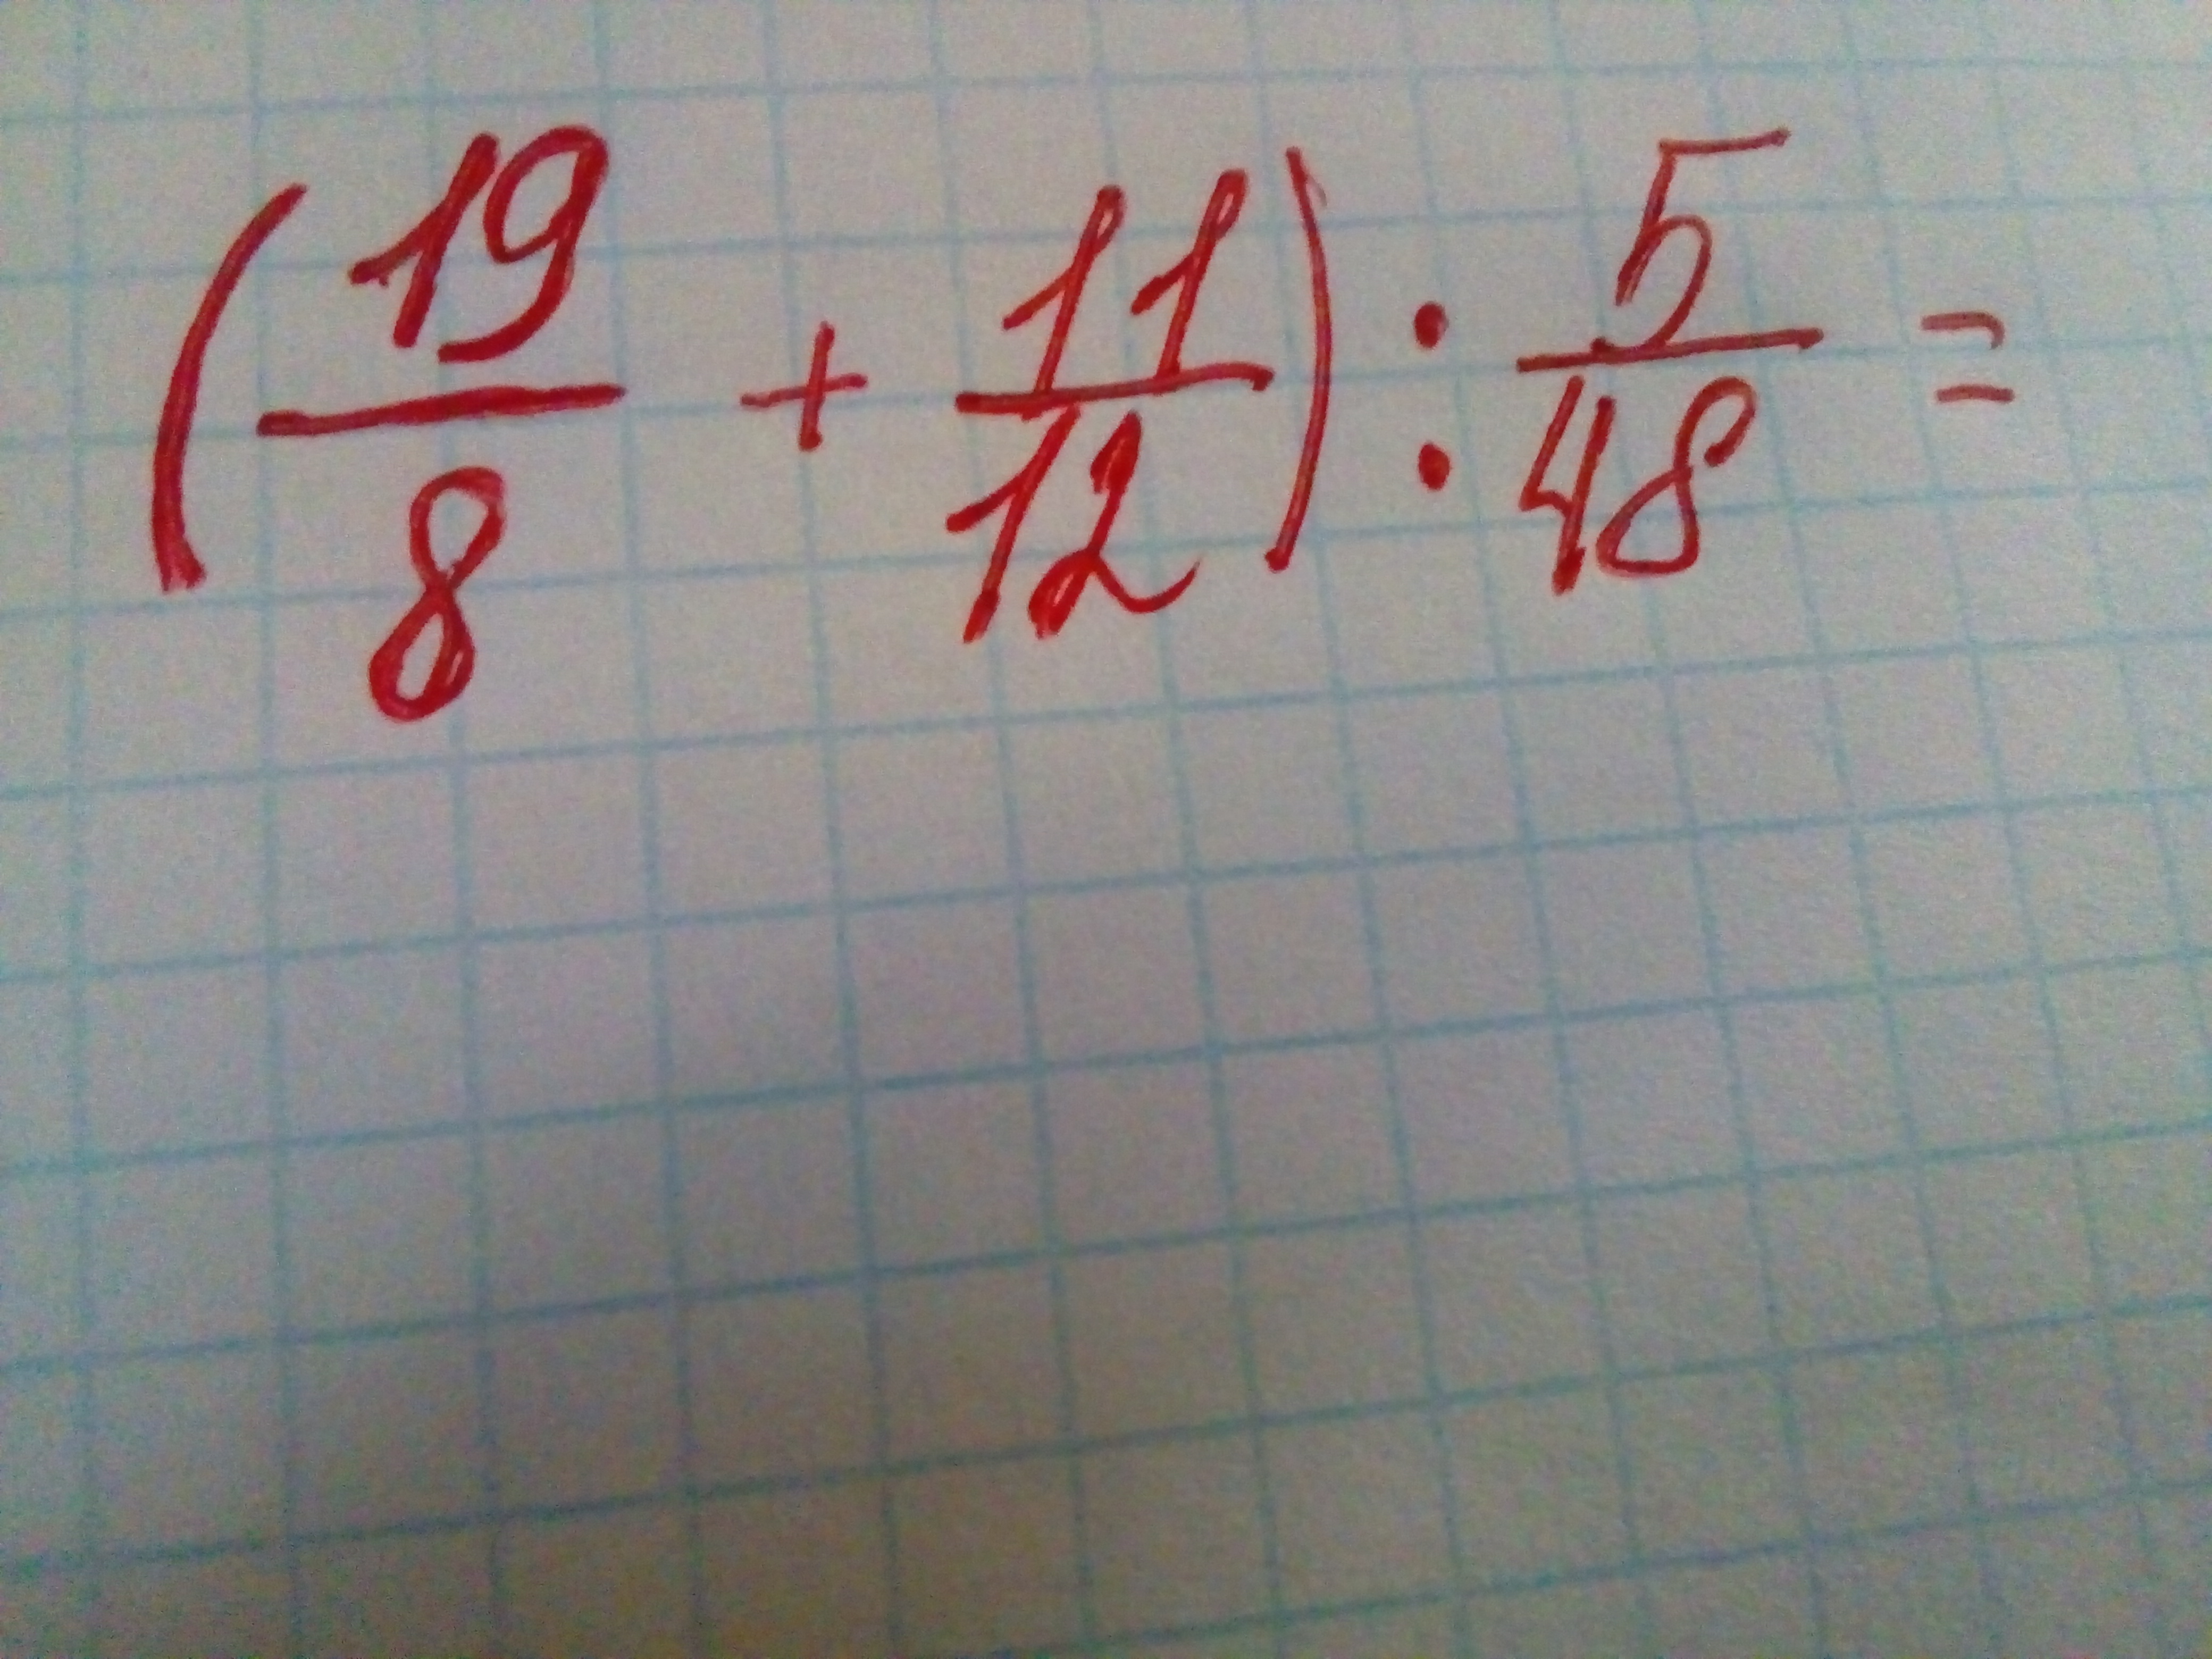 (19/8 + 11/12) : 5/48 =